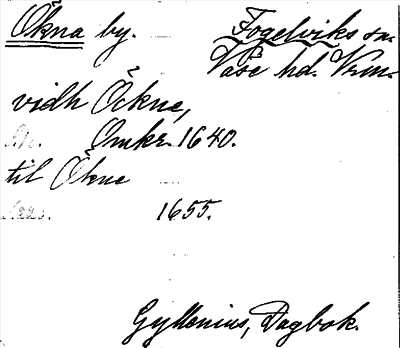 Ökna by. Fogelviks sn.
Väse hd. Vrm.
vidh Öckne,
Omkr. 1640.
til Ökne
1655.
Gyllenius, Dagbok.